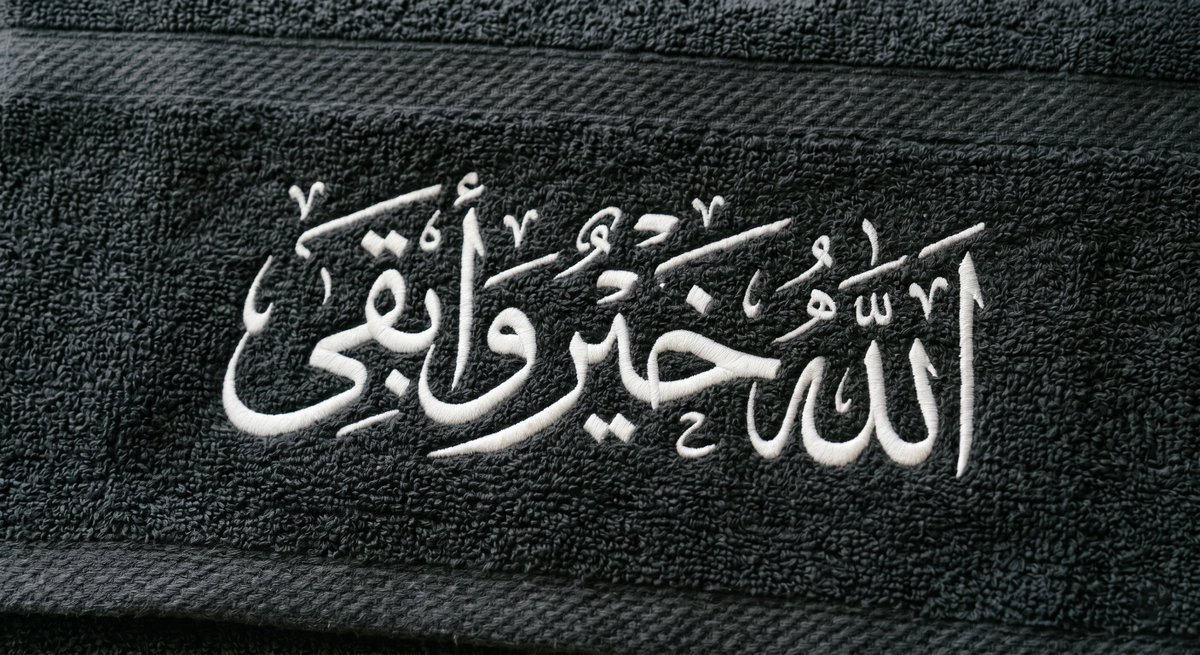 الله خير وأبقى